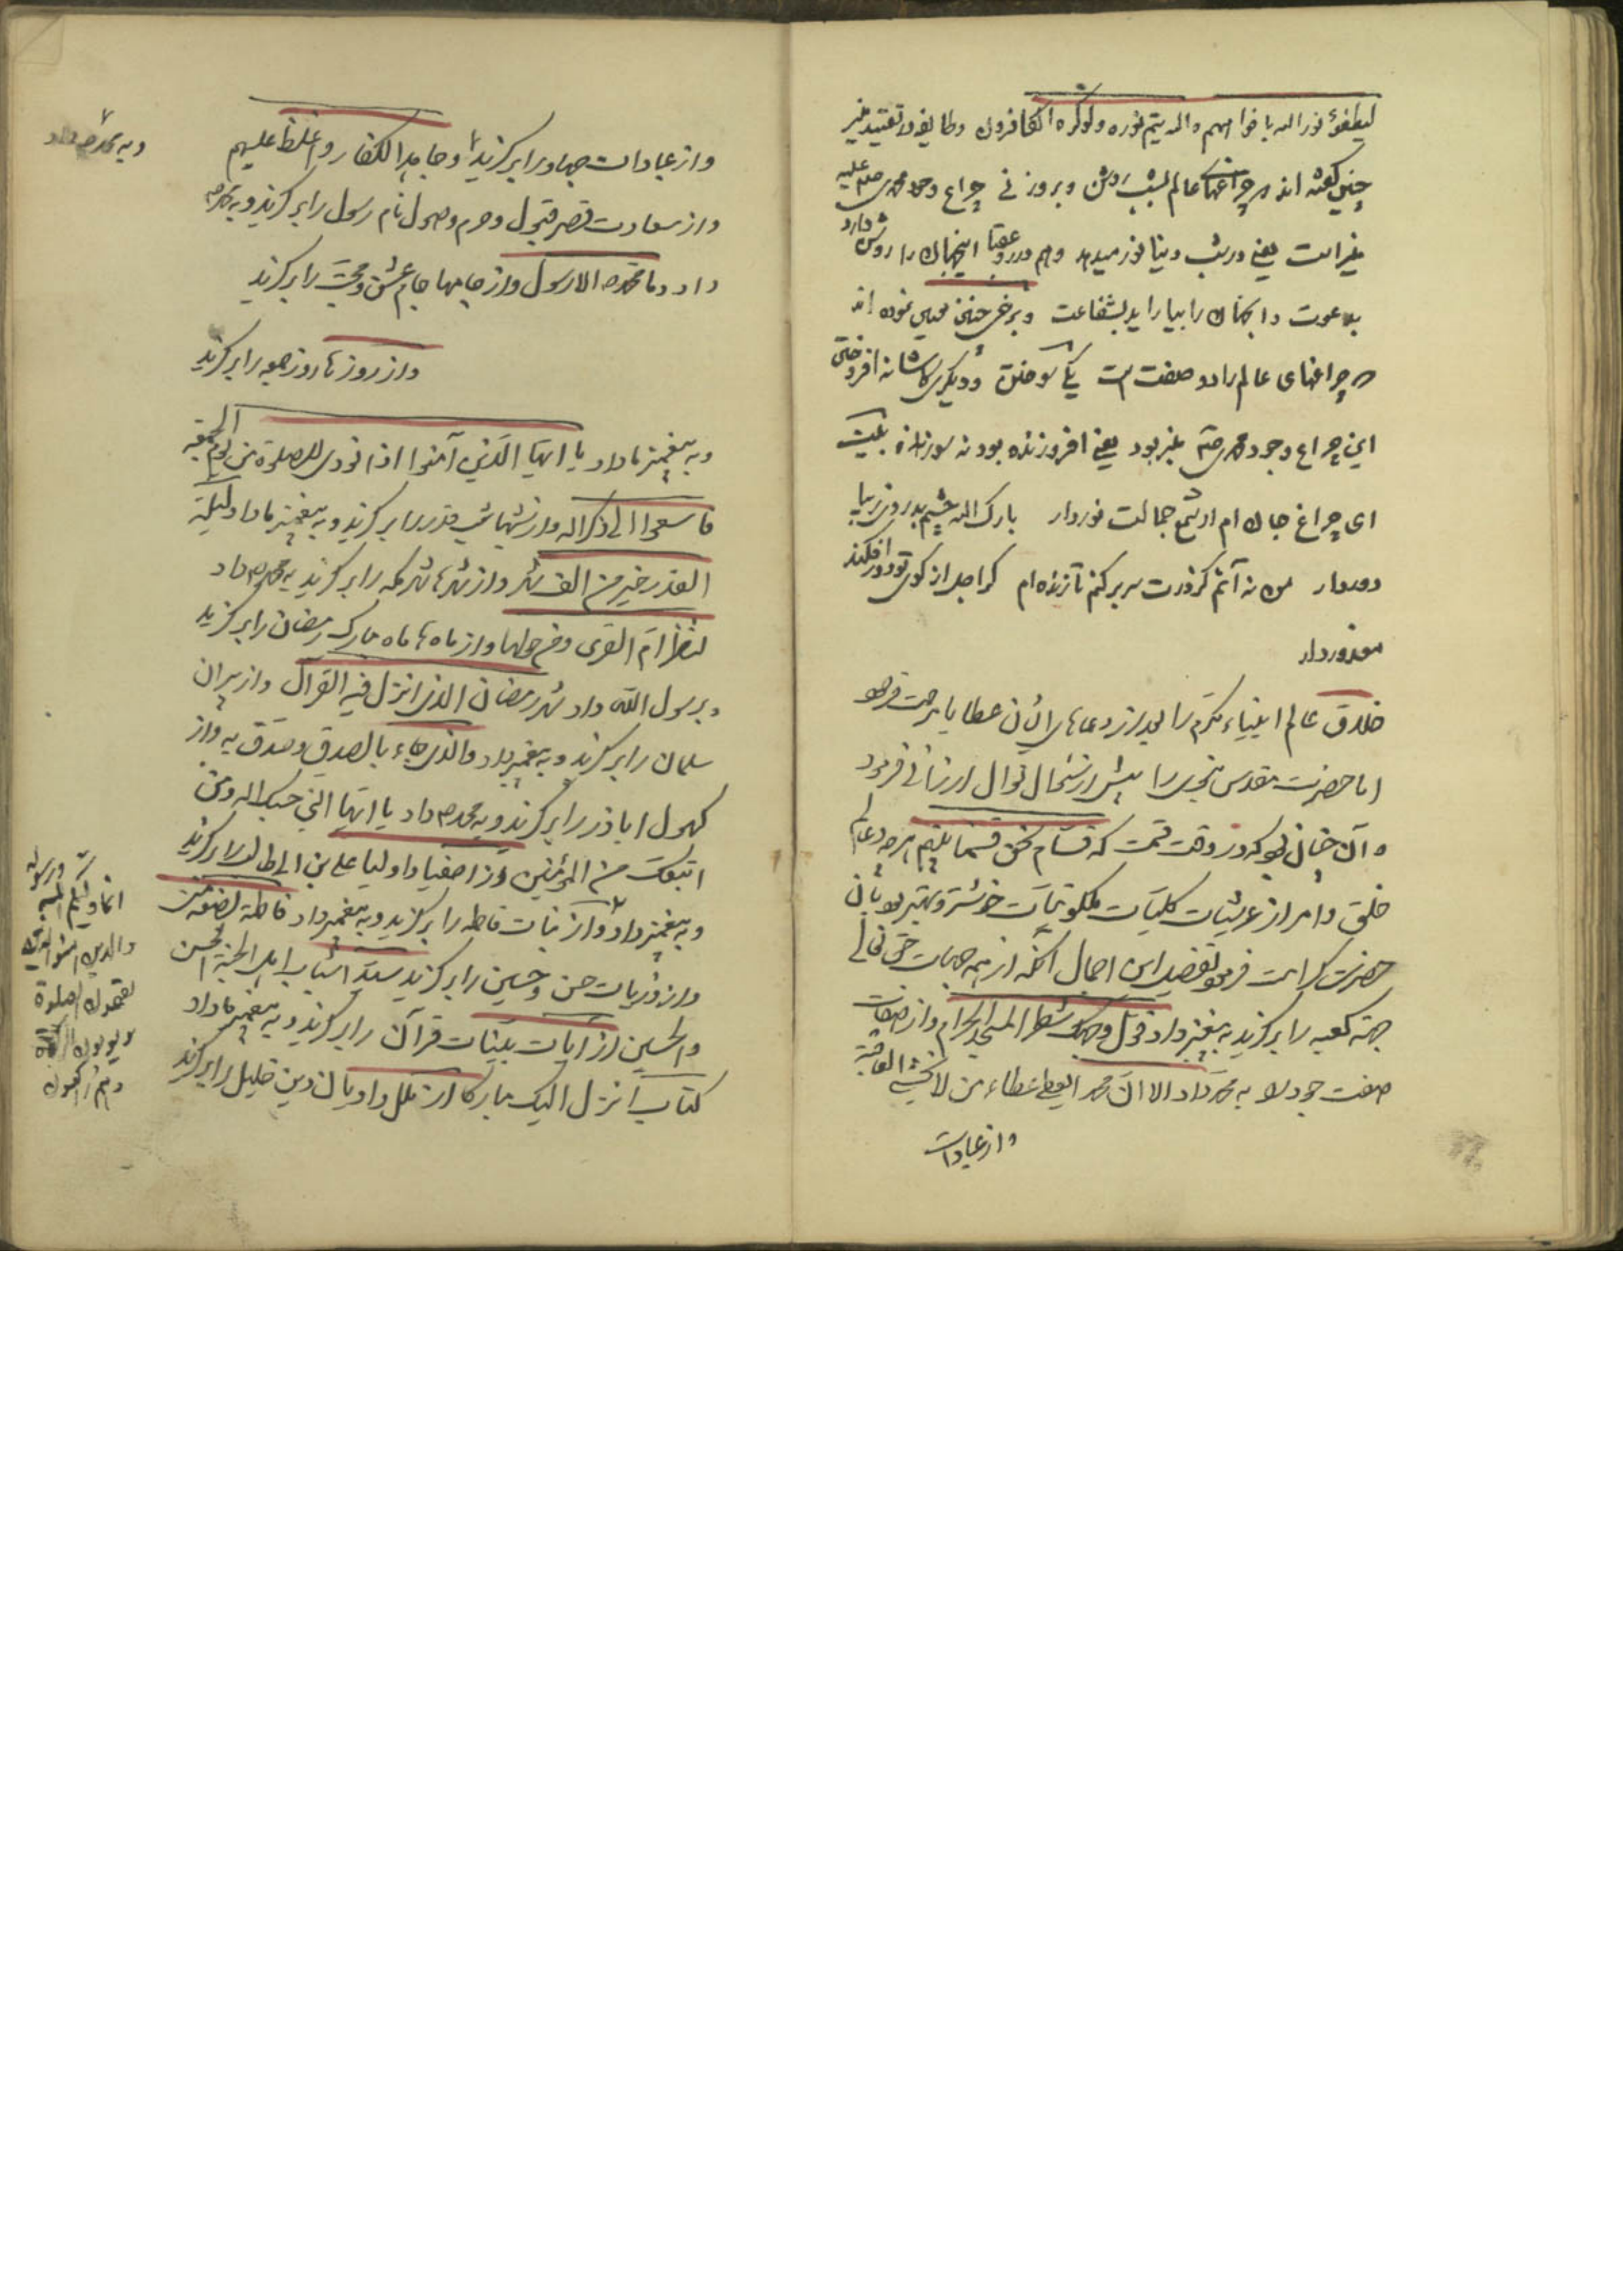 ليطفؤ نور الله بافواههم والله يتم نوره ولو كره الكافرون وطايفه در تقييد منير
چنين گفته اند كه چراغهاى عالم بشب روشن و بروز نى چراغ وجود محمدى صلى الله عليه
منير است يعنى در شب دنيا نور ميدهد وهم در روز عقبا اينجهان را روشن دارد
بدعوت و آنجهان را بيارايد بشفاعت و برخى چنين نموده اند
كه چراغهاى عالم را دو صفت است يكى سوختن و ديگرى كاشانه افروختن
اين چراغ وجود محمدى صلعم منير بود يعنى افروزنده بود نه سوزنده بيت
اى چراغ جان ام از شمع جمالت نور دار بارك الله چشم بد از روى زيبا
دور دار من نه آنم كز درت سر بر كنم تا زنده ام گر اجل از كوى تو دور افكند
معذور دار
خلاق عالم انبياء مكرم را بعد از دعاهاى ايشان عطايا مرحمت فرمود
اما حضرت مقدس نبوى را پيش از سئوال نوال ارزانى فرمود
و آن چنان بود كه در وقت قسمت كه قسام نحن قسمنا بينهم هر چه در عالم
خلق و امر از عرشيات كليات ملكوتيات خوشتر و بهتر بود بآن
حضرت كرامت فرمود تفصيل اين اجمال آنكه از همه جهات حق تعالى
جهة كعبه را برگزيد به پيغمبر داد فول وجهك شطر المسجد الحرام و از صفات
صفت جود را به محمد داد الا ان محمد اليعطى عطاء من لا يخشى الفاقة
و از عبادات
و از عبادات جهاد را برگزيد وجاهد الكفار واغلظ عليهم
و به محمد ص داد
و از سعادت قصر قبول و حرم وصول نام رسول را برگزيد و به محمد ص
داد وما محمد الا رسول و از جامها جام عشق و محبت را برگزيد
و از روزها روز جمعه را برگزيد
و به پيغمبر ما داد يا ايها الذين آمنوا اذا نودى للصلوة من يوم الجمعة
فاسعوا الى ذكر الله و از شبها شب قدر را برگزيد و به پيغمبر ما داد ليلة
القدر خير من الف شهر و از شهرها شهر مكه را برگزيد به محمد ص داد
لتنذر ام القرى ومن حولها و از ماه ها ماه مبارك رمضان را برگزيد
و برسول الله داد شهر رمضان الذى انزل فيه القرآن و از پيران
سلمان را برگزيد و به پيغمبر داد والذى جاء بالصدق وصدق به و از
كهول اباذر را برگزيد و به محمد ص داد يا ايها النبى حسبك الله ومن
اتبعك من المؤمنين و از اصفيا و اوليا على بن ابى طالب را برگزيد
و به پيغمبر داد و از بنات فاطمه را برگزيد و به پيغمبر داد فاطمة بضعة منى
و از ذريات حسن و حسين را برگزيد سيدا شباب اهل الجنة الحسن
والحسين از آيات بينات قرآن را برگزيد و به پيغمبر ما داد
كتاب انزل اليك مباركا از ملل و اديان دين خليل را برگزيد
انما وليكم الله ورسوله
والذين امنوا الذين
يقيمون الصلوة
ويوتون الزكوة
وهم راكعون